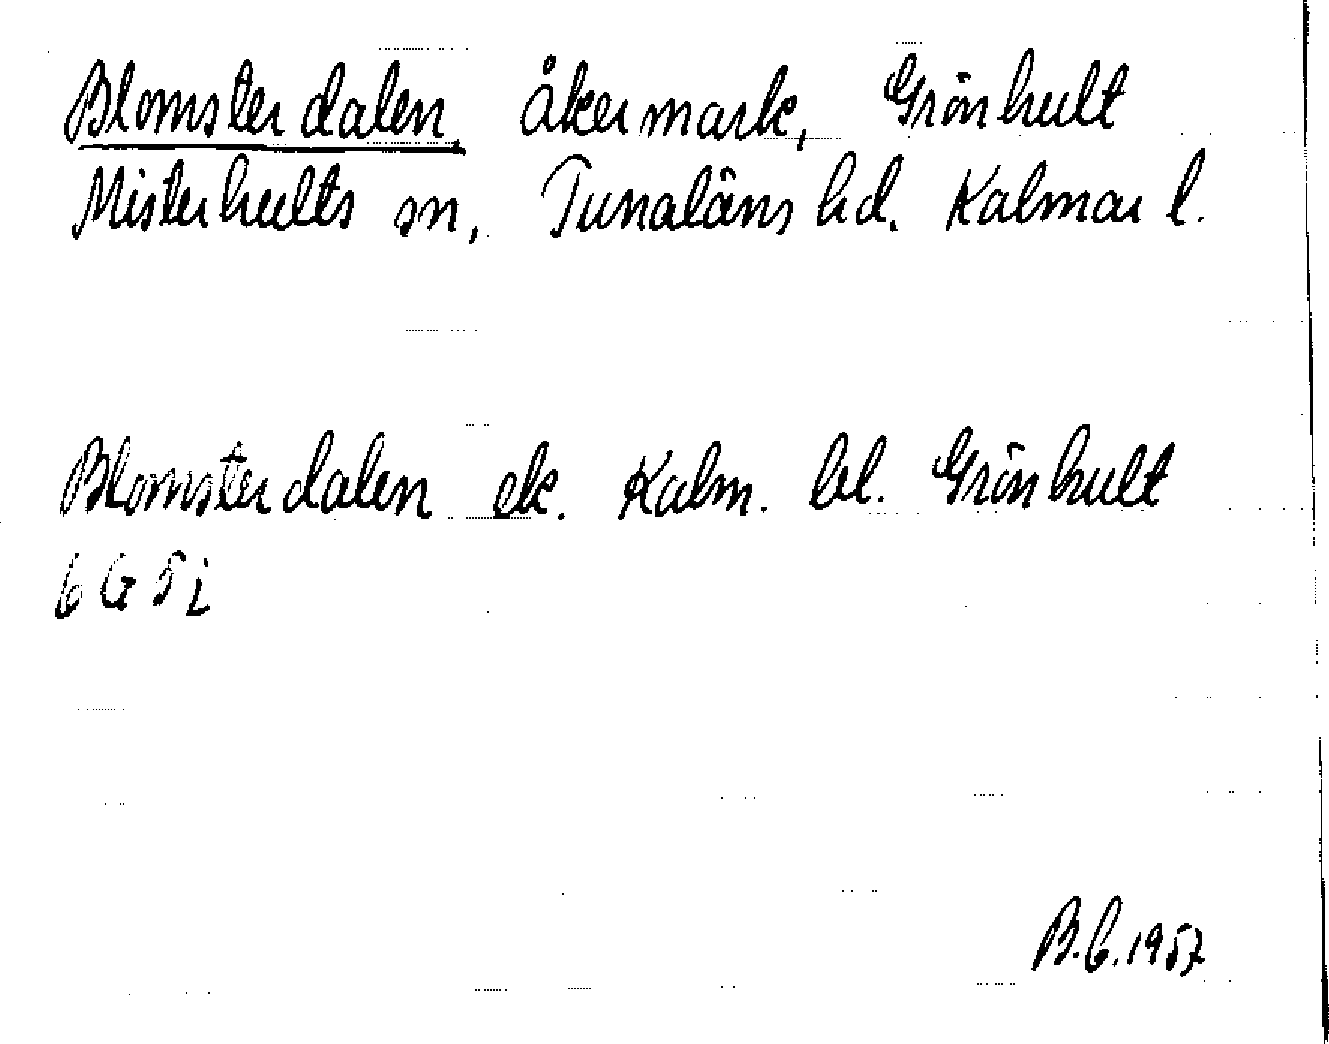 Blomsterdalen, åkermark, Grönhult
Misterhults sn, Tunaläns hd. Kalmar l.
Blomsterdalen ek. Kalm. bl. Grönhult
6 G 5 i
B.C. 1957